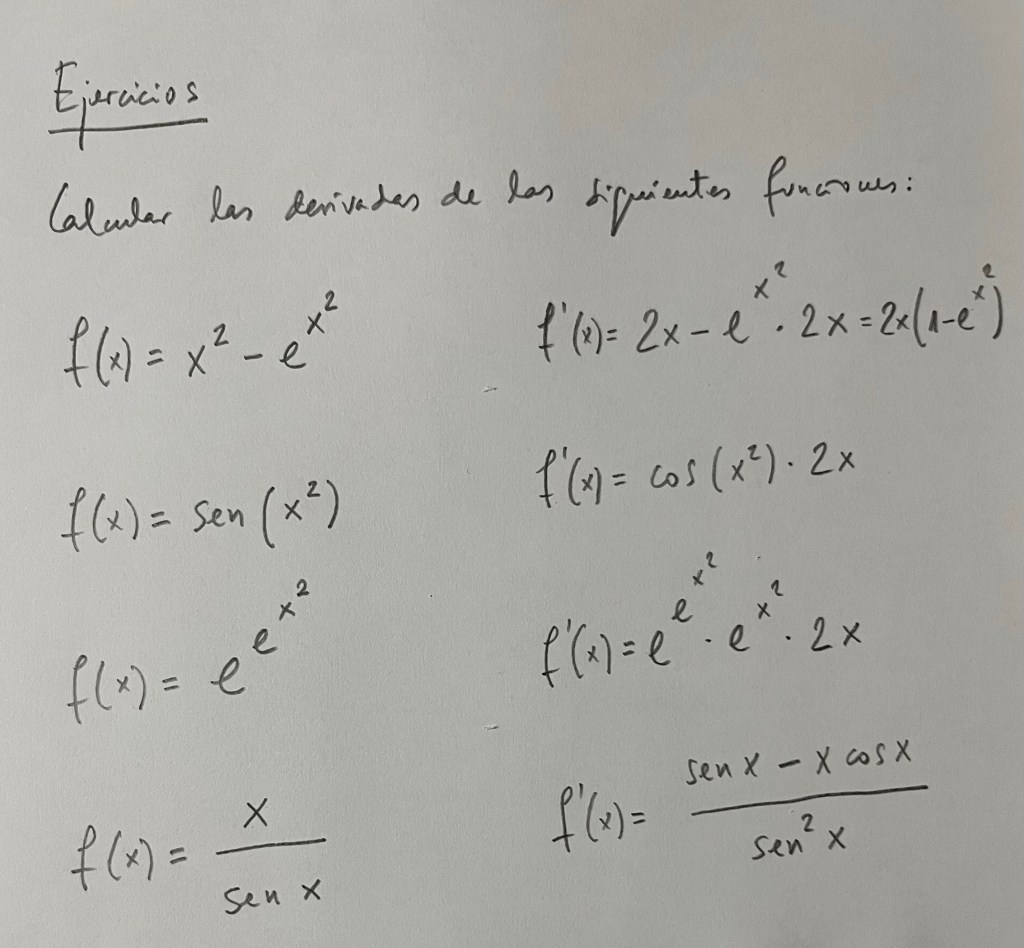 Ejercicios
Calcular las derivadas de las siguientes funciones:
f(x) = x² - e^x²  f'(x) = 2x - e^x² · 2x = 2x(1-e^x²)
f(x) = sen (x²)  f'(x) = cos (x²) · 2x
f(x) = e^e^x²  f'(x) = e^e^x² · e^x² · 2x
f(x) = x / sen x  f'(x) = (sen x - x cos x) / sen² x